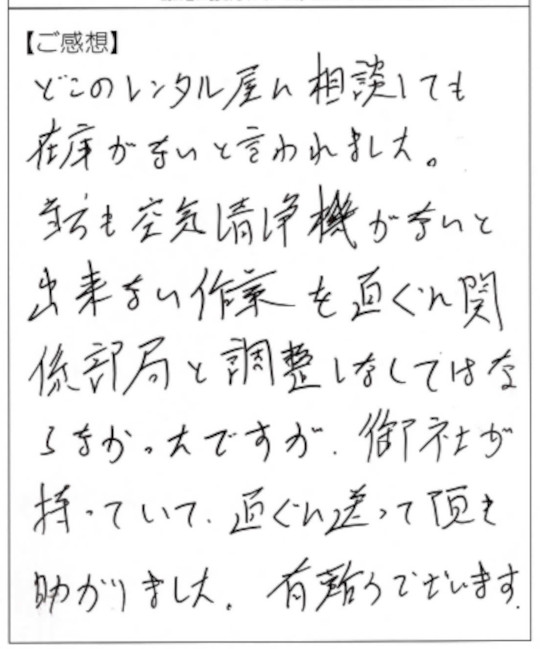 【ご感想】
どこのレンタル屋に相談しても
在庫がないと言われました。
当方も空気清浄機がないと
出来ない作業を直ぐに関
係部局と調整しなくてはな
らなかったですが、御社が
持っていて、直ぐに送って頂き
助かりました。有難うございます。